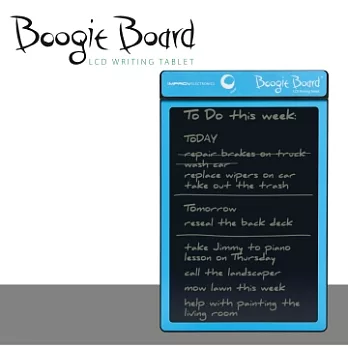 Boogie Board
LCD WRITING TABLET
IMPROV ELECTRONICS
Boogie Board
LCD Writing Tablet
To Do this week:
ToDAY
repair brakes on truck
wash car
replace wipers on car
take out the trash
Tomorrow
reseal the back deck
take Jimmy to piano
lesson on Thursday
call the landscaper
mow lawn this week
help with painting the
living room